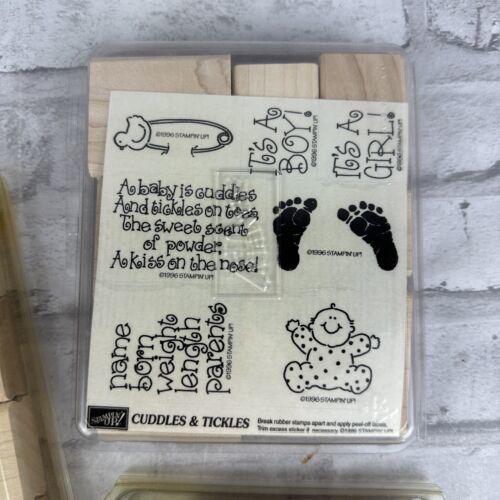 ©1996 STAMPIN' UP!
IT'S A
BOY!
©1996 STAMPIN' UP!
IT'S A
GIRL!
©1996 STAMPIN' UP!
A baby is cuddles
And tickles on toes,
The sweet scent
of powder.
A kiss on the nose!
©1996 STAMPIN' UP!
©1996 STAMPIN' UP!
name
born
weight
length
parents
©1996 STAMPIN' UP!
©1996 STAMPIN' UP!
STAMPIN' UP!
CUDDLES & TICKLES
Break rubber stamps apart and apply peel-off labels.
Trim excess sticker if necessary. ©1996 STAMPIN' UP!